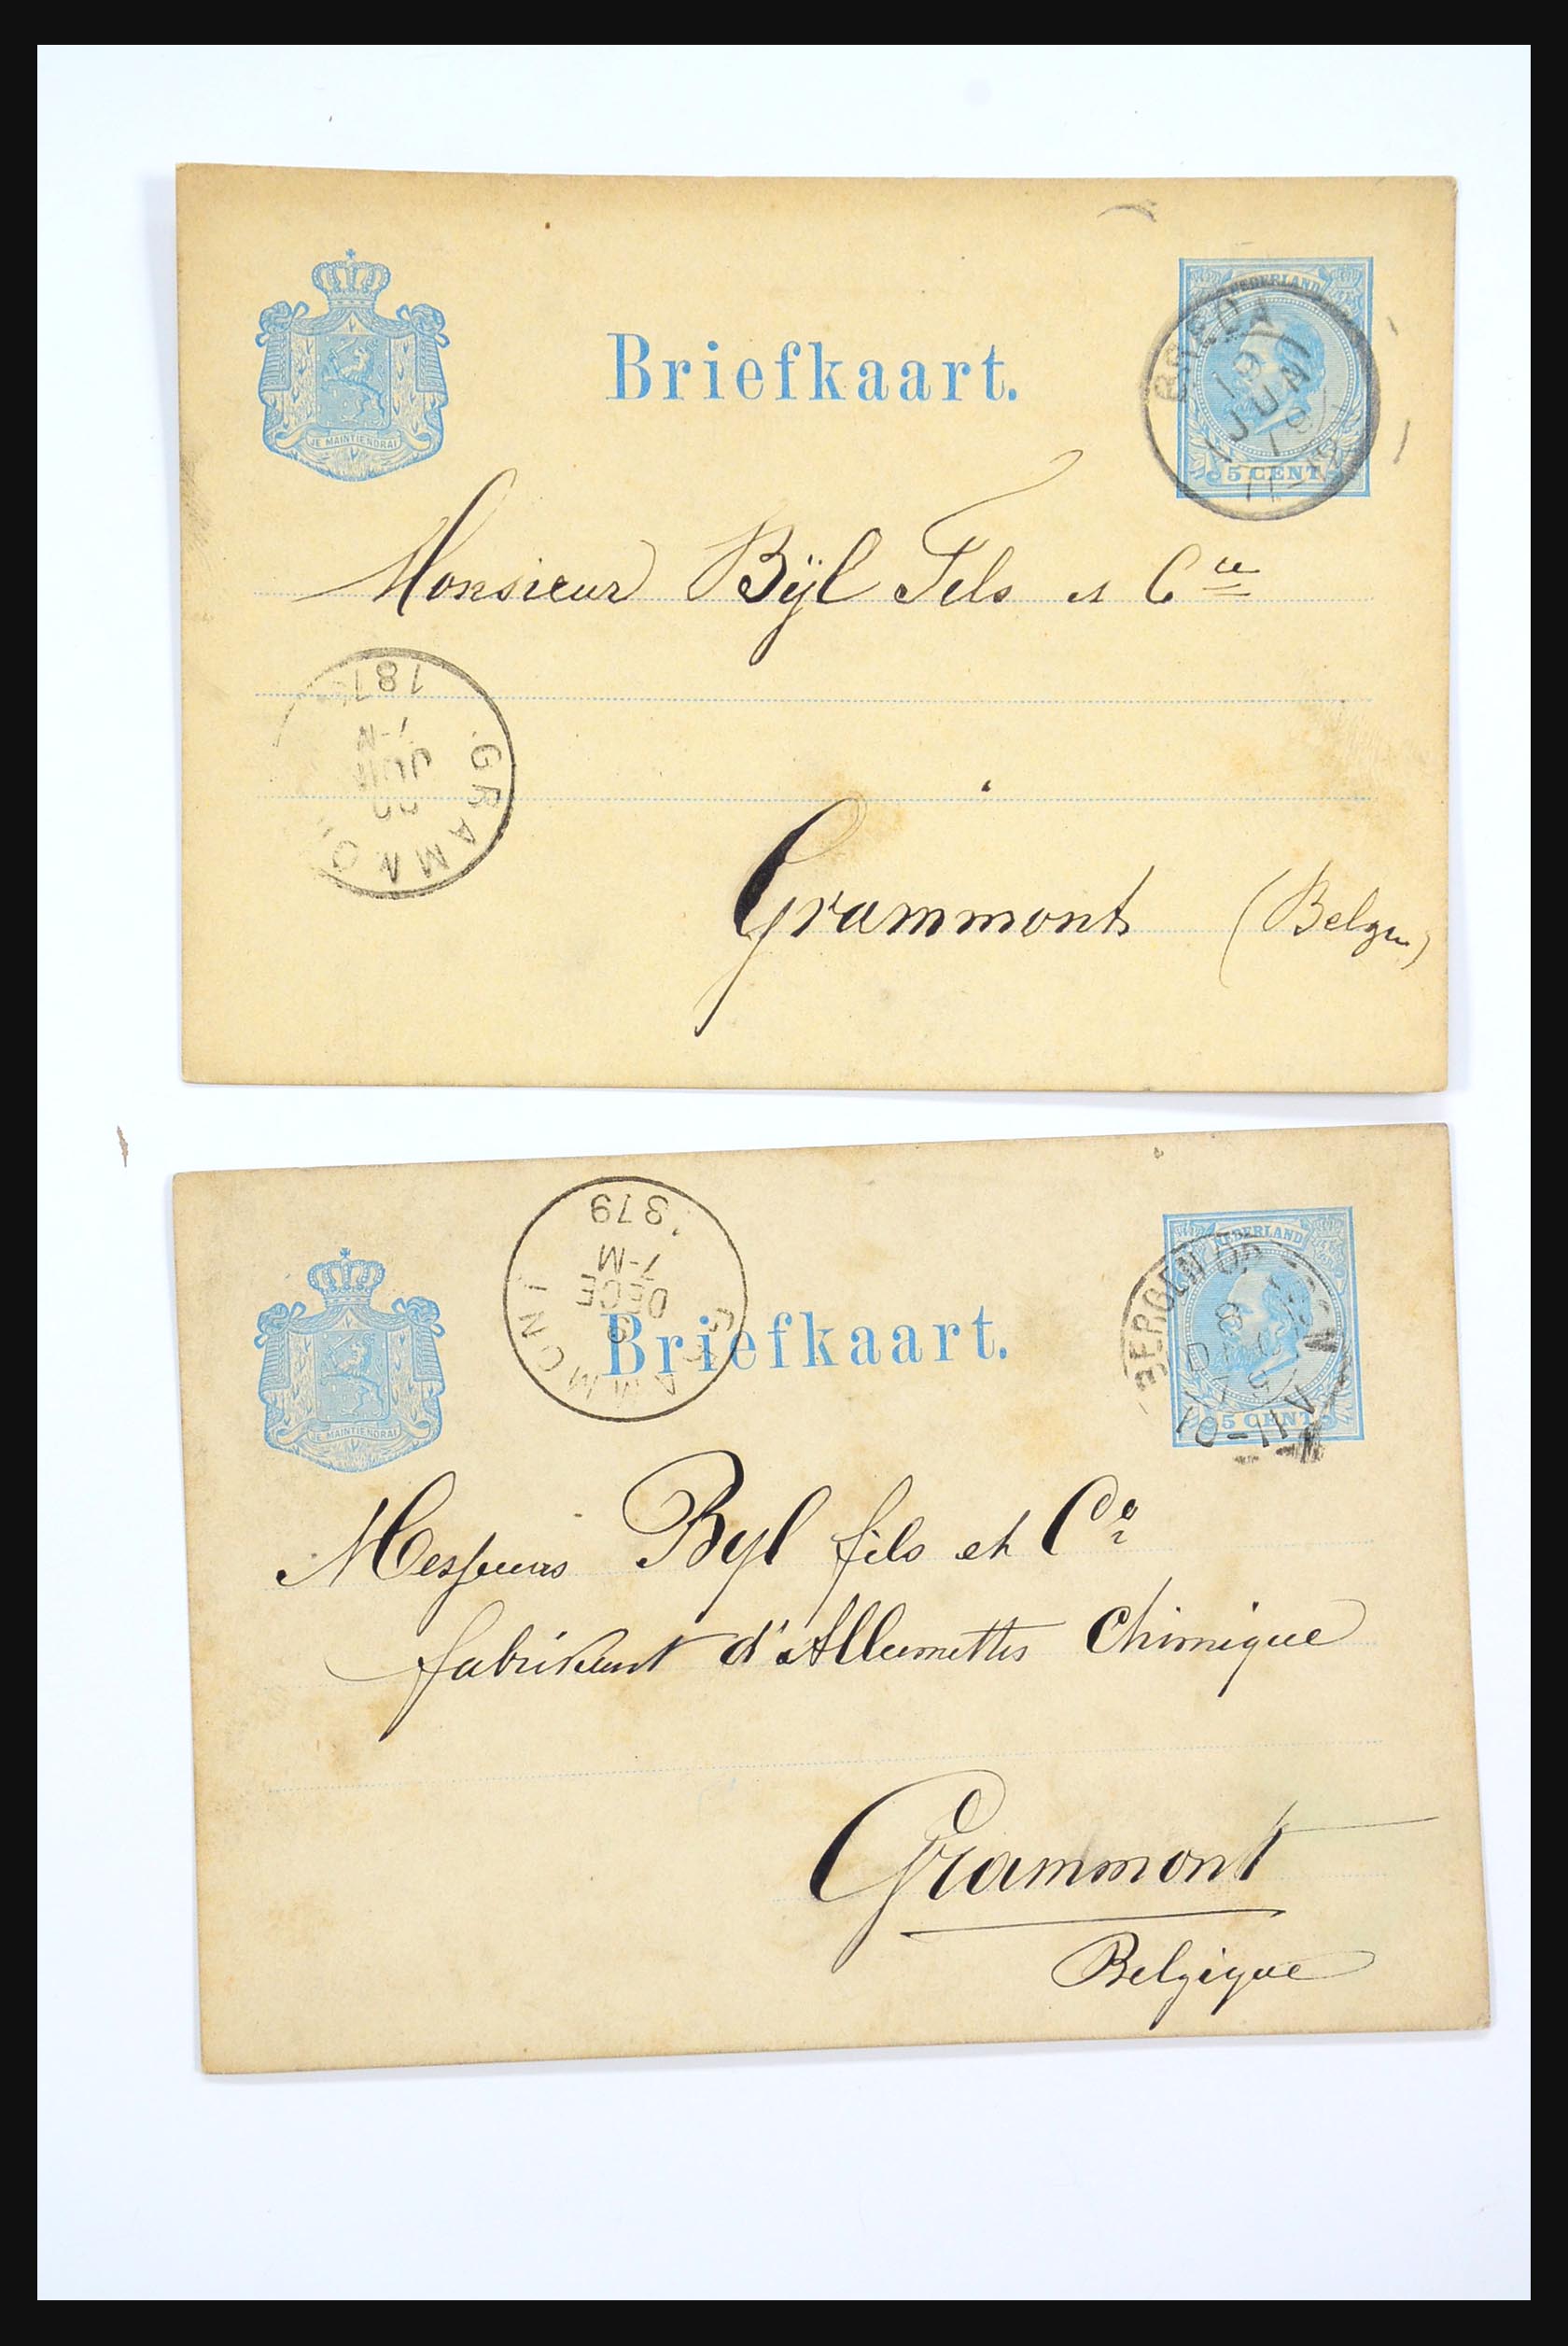 Briefkaart.
JE MAINTIENDRAI
NEDERLAND
5 CENT
BREDA
19
JUN
79
Monsieur Bÿl Fils et Cie
187
7-M
JUIN
GRAMMO
Grammont (Belgn)
Briefkaart.
JE MAINTIENDRAI
1879
7-M
DECE
9
GRAMMONT
NEDERLAND
5 CENT
BERGEN OP ZOOM
8
DEC
79
10-11V
Messieurs Byl fils et Co
fabrikant d'Allumettes Chimique
Grammont
Belgique